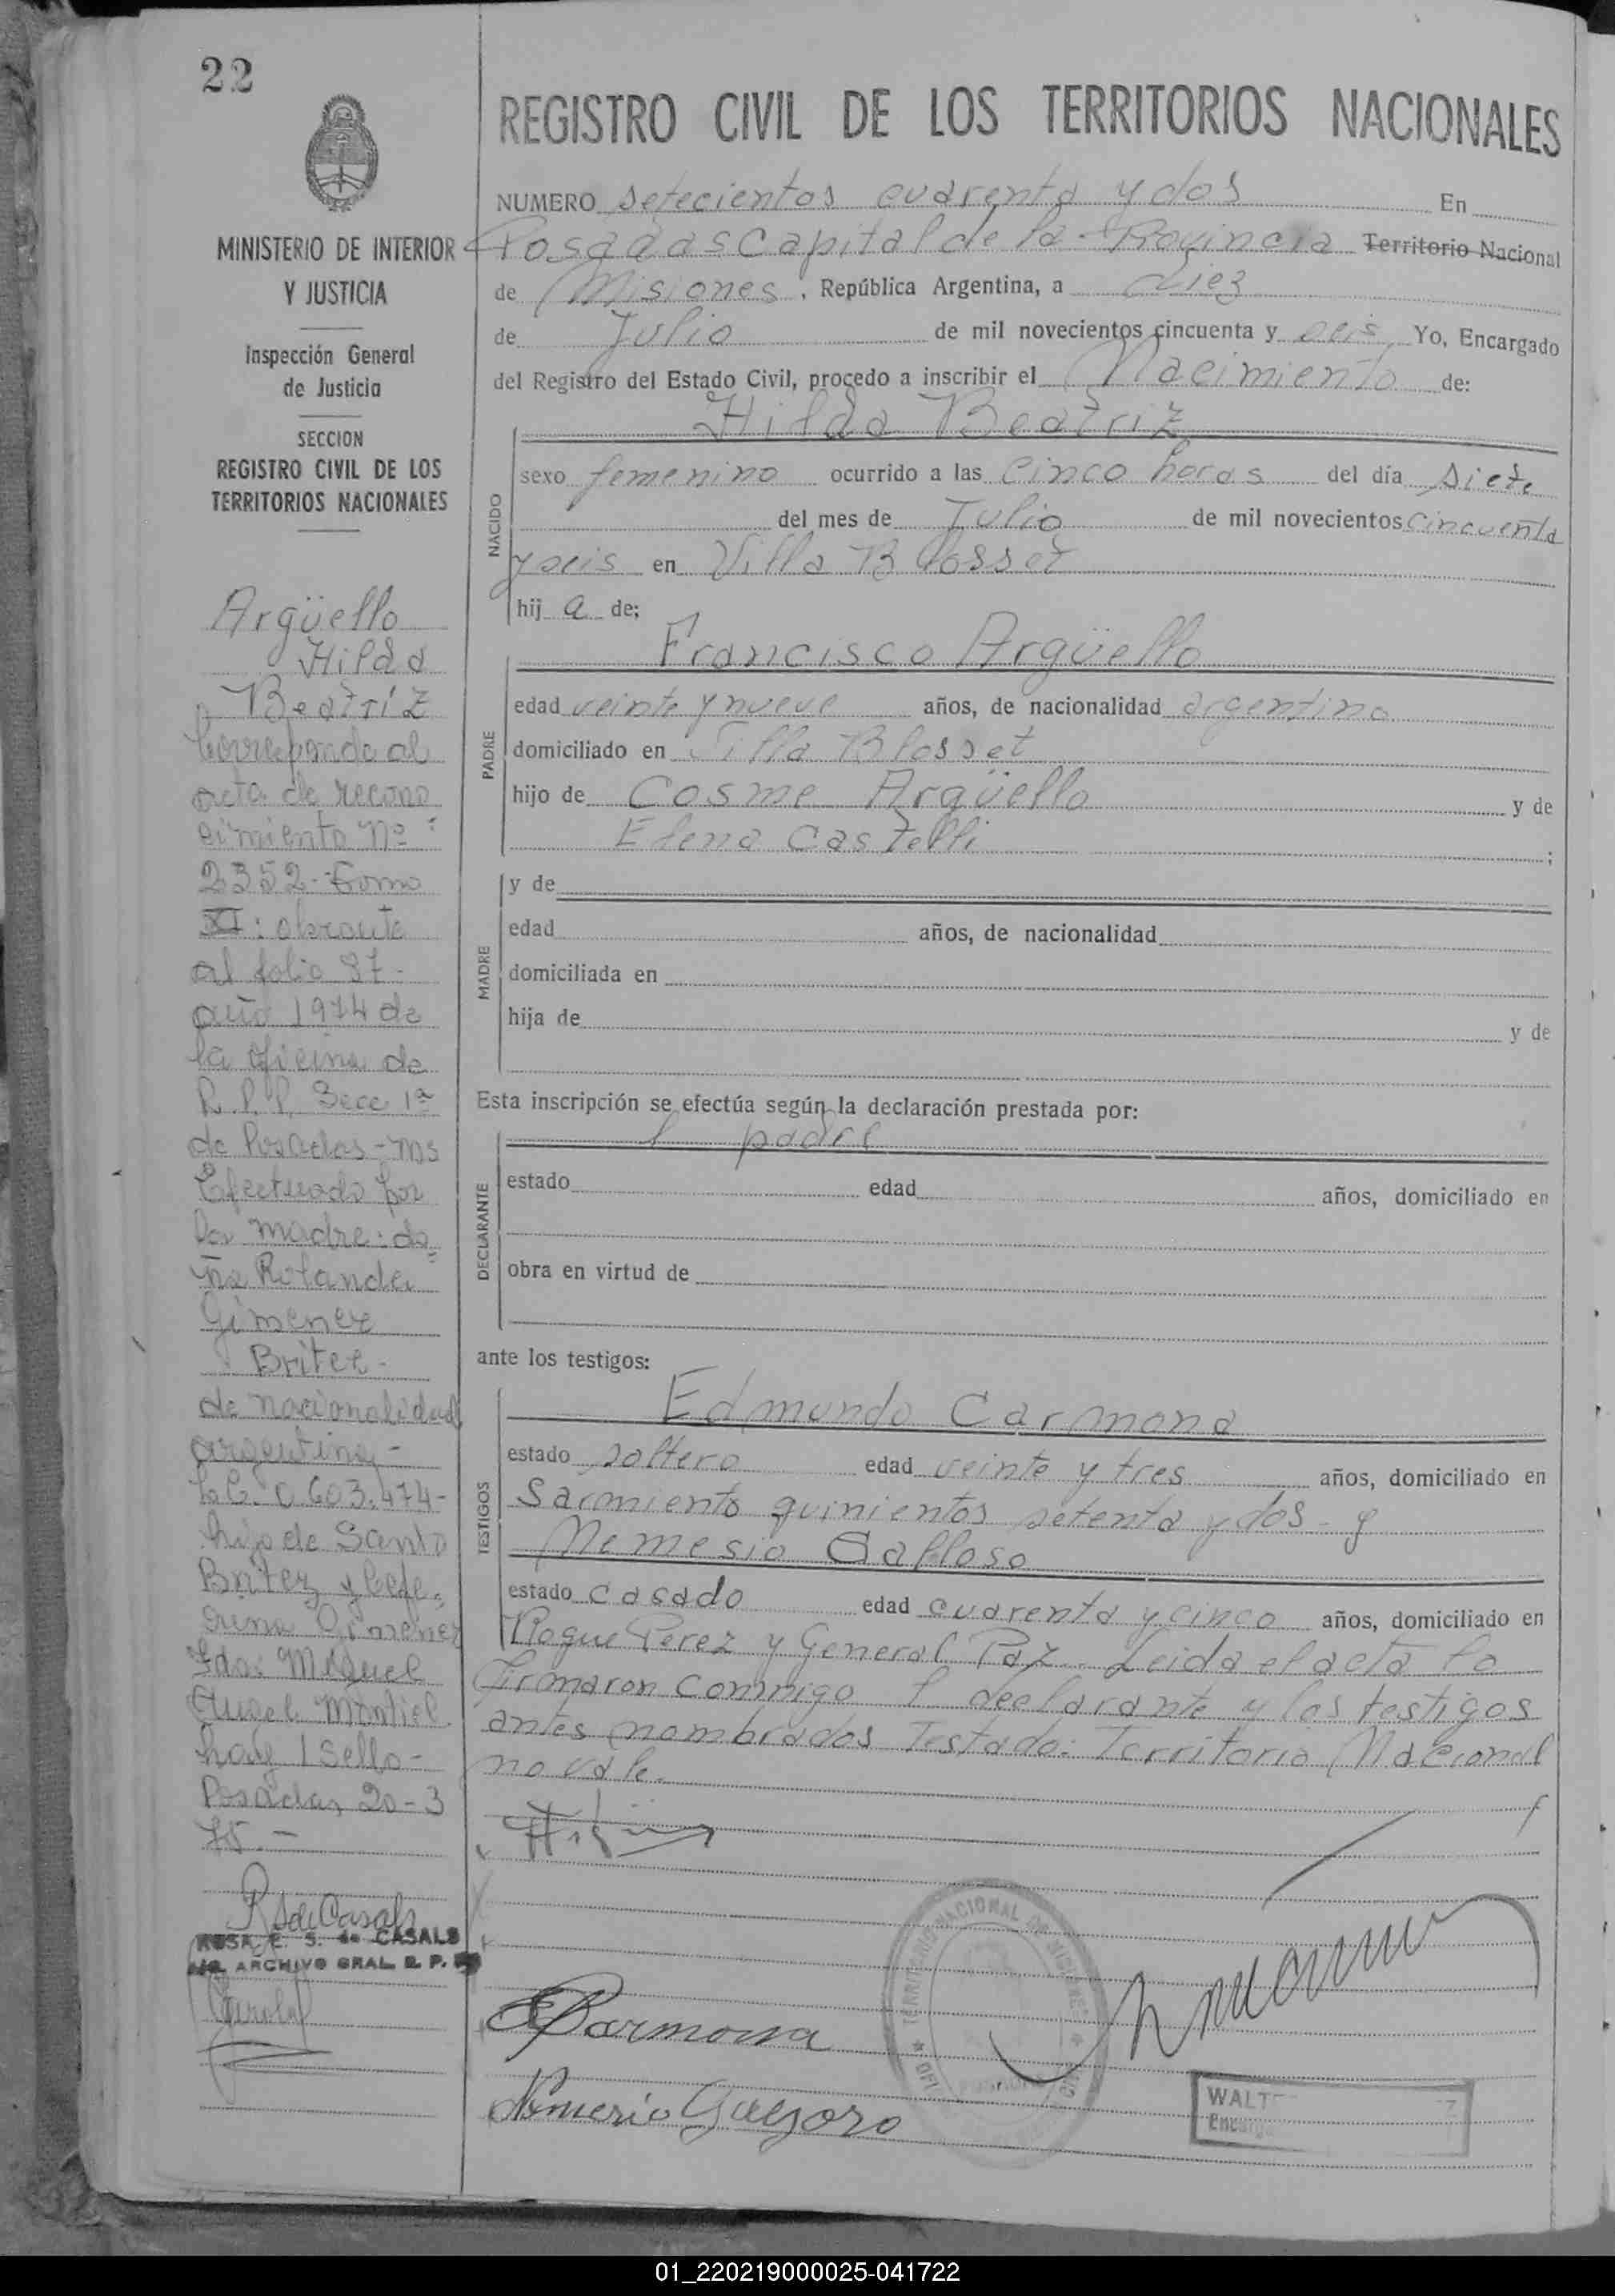 22
MINISTERIO DE INTERIOR
Y JUSTICIA
Inspección General
de Justicia
SECCION
REGISTRO CIVIL DE LOS
TERRITORIOS NACIONALES
Argüello
Hilda
Beatriz
Corresponde al
acta de recono
cimiento Nº:
2352-Tomo
XI: obrante
al folio 87-
año 1974 de
la oficina de
R.P.P. Secc 1ª
de Posadas-Ms
Efectuado por
la madre: do
ña Rolanda
Gimenez
Britez-
de nacionalidad
argentina-
L.C. 0.603.474-
hija de Santo
Britez y Cefe-
rina Gimenez
Fdo: Miguel
Angel Montiel
hay 1 sello-
Posadas 20-3
75.-
RSdeCasals
ROSA E. S. de CASALS
ARCHIVO GRAL. R. P.
REGISTRO CIVIL DE LOS TERRITORIOS NACIONALES
NUMERO setecientos cuarenta y dos En
Posadas Capital de la Provincia Territorio Nacional
de Misiones, República Argentina, a diez
de Julio de mil novecientos cincuenta y seis Yo, Encargado
del Registro del Estado Civil, procedo a inscribir el Nacimiento de:
Hilda Beatriz
NACIDO
sexo femenino ocurrido a las cinco horas del día siete
del mes de Julio de mil novecientos cincuenta
y seis en Villa Blosset
hij a de;
PADRE
Francisco Argüello
edad veinte y nueve años, de nacionalidad argentina
domiciliado en Villa Blosset
hijo de Cosme Argüello y de
Elena Castelli ;
MADRE
y de
edad años, de nacionalidad
domiciliada en
hija de y de
Esta inscripción se efectúa según la declaración prestada por:
DECLARANTE
l padre
estado edad años, domiciliado en
obra en virtud de
ante los testigos:
TESTIGOS
Edmundo Carmona
estado soltero edad veinte y tres años, domiciliado en
Sarmiento quinientos setenta y dos - y
Nemesio Galloso
estado casado edad cuarenta y cinco años, domiciliado en
Roque Perez y General Paz. Leida el acta la
firmaron conmigo l declarante y los testigos
antes nombrados Testado: Territorio Nacional
no vale.
TERRITORIO NACIONAL DE MISIONES
ECarmona
WALT
Encarg
01_220219000025-041722